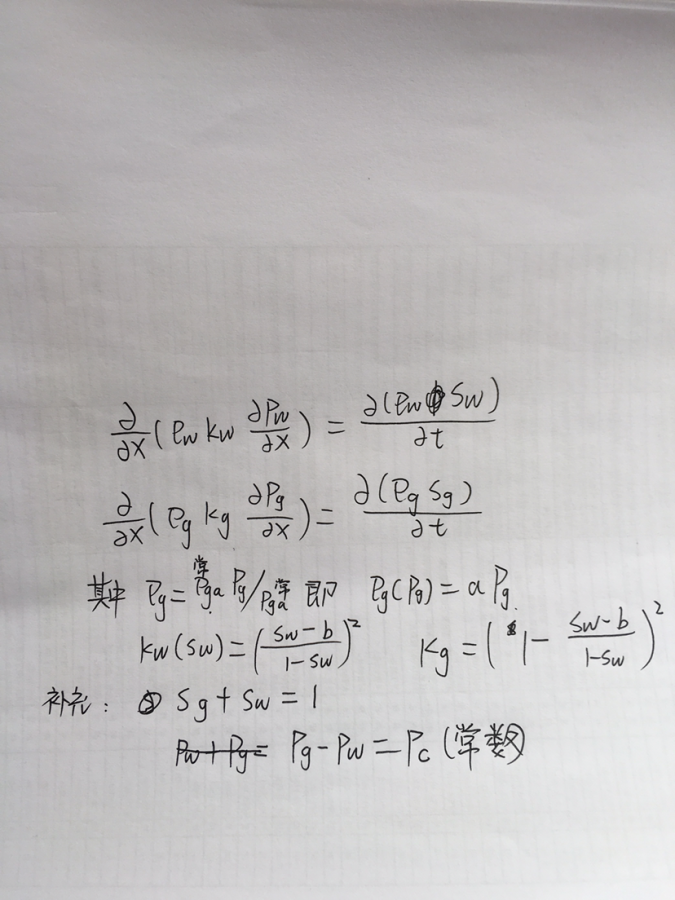 ∂/∂x (ρw kw ∂Pw/∂x) = ∂(ρw Sw)/∂t
∂/∂x (ρg kg ∂Pg/∂x) = ∂(ρg Sg)/∂t
其中 ρg = ρga 常 Pg/Pga 常 即 ρg(Pg) = a Pg.
kw(sw) = ((sw-b)/(1-sw))² kg = (1 - (sw-b)/(1-sw))²
补充: Sg + Sw = 1
Pw + Pg = Pg - Pw = Pc (常数)